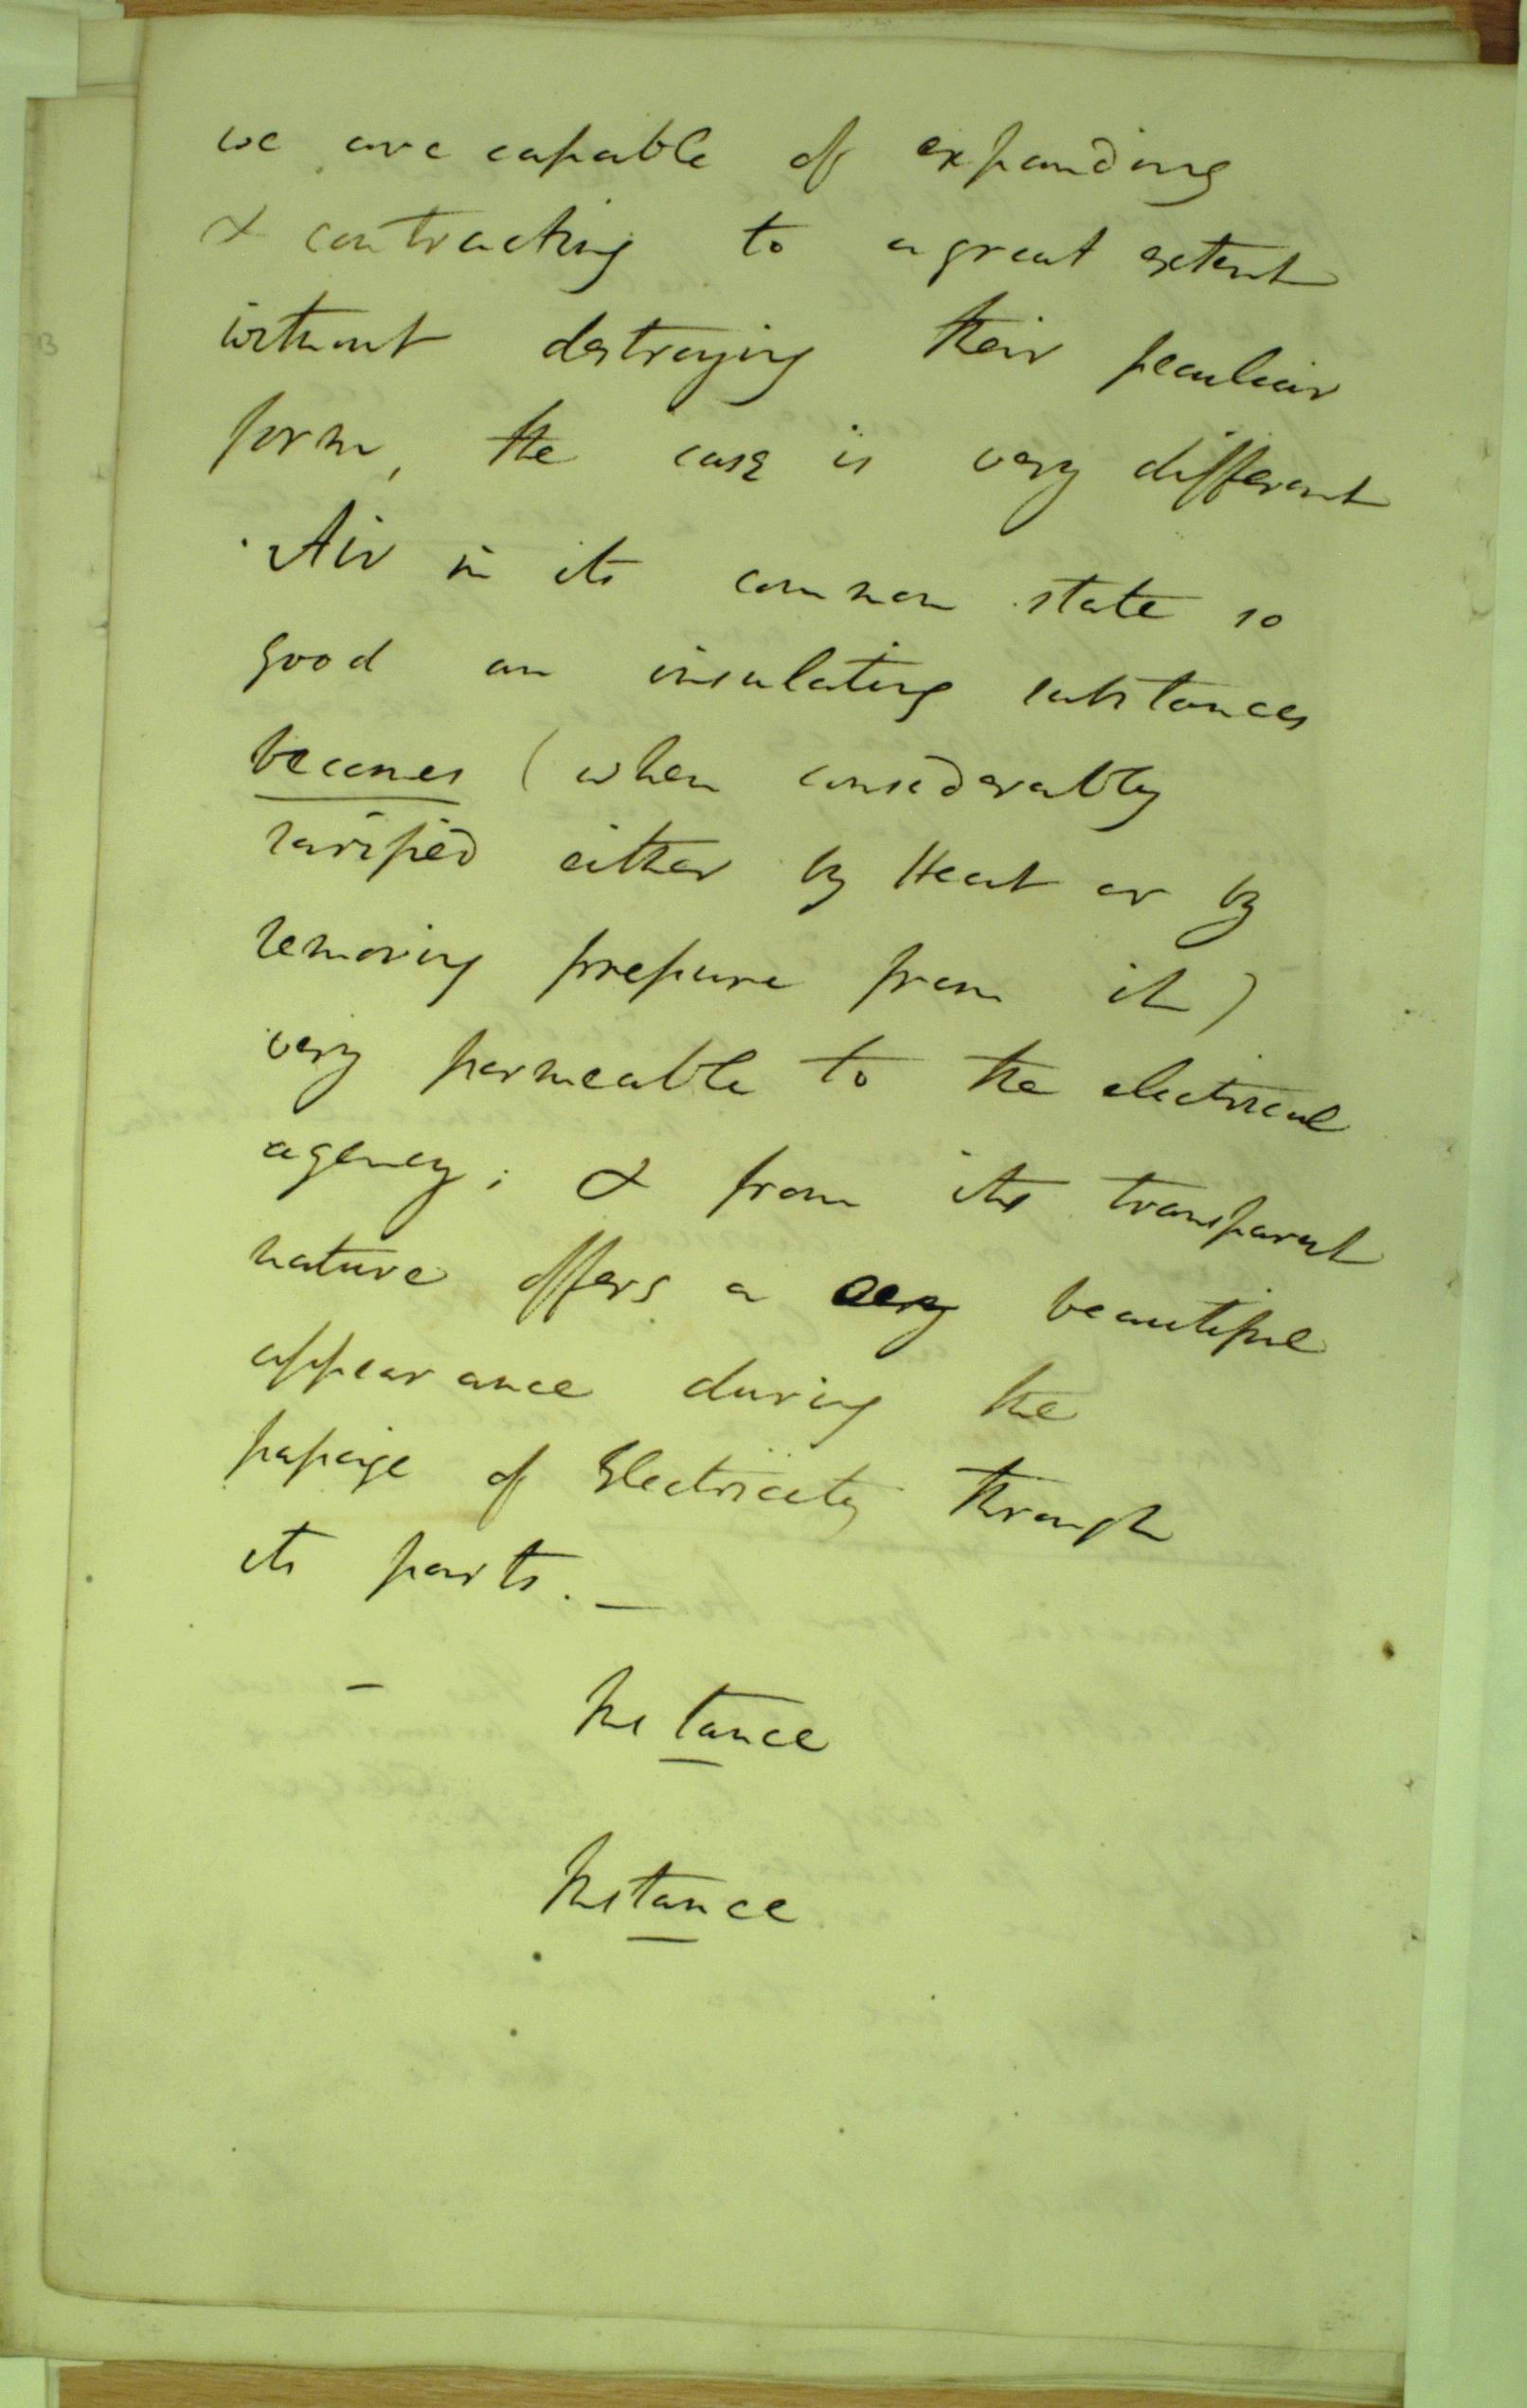 we are capable of expanding
& contracting to a great extent
without destroying their peculiar
form, the case is very different
Air in its common state so
good an insulating substances
becomes (when considerably
rarified either by Heat or by
removing pressure from it)
very permeable to the electrical
agency; & from its transparent
nature offers a very beautiful
appearance during the
passage of Electricity through
its parts. —
— Instance
Instance